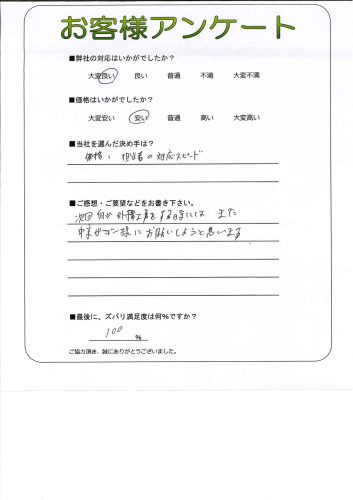 お客様アンケート
■弊社の対応はいかがでしたか?
大変良い 良い 普通 不満 大変不満
■価格はいかがでしたか?
大変安い 安い 普通 高い 大変高い
■当社を選んだ決め手は?
価格、担当者の対応スピード
■ご感想・ご要望などをお書き下さい。
次回何か外構工事をする時には また
様にお願いしようと思います
■最後に、ズバリ満足度は何%ですか?
100 %
ご協力頂き、誠にありがとうございました。